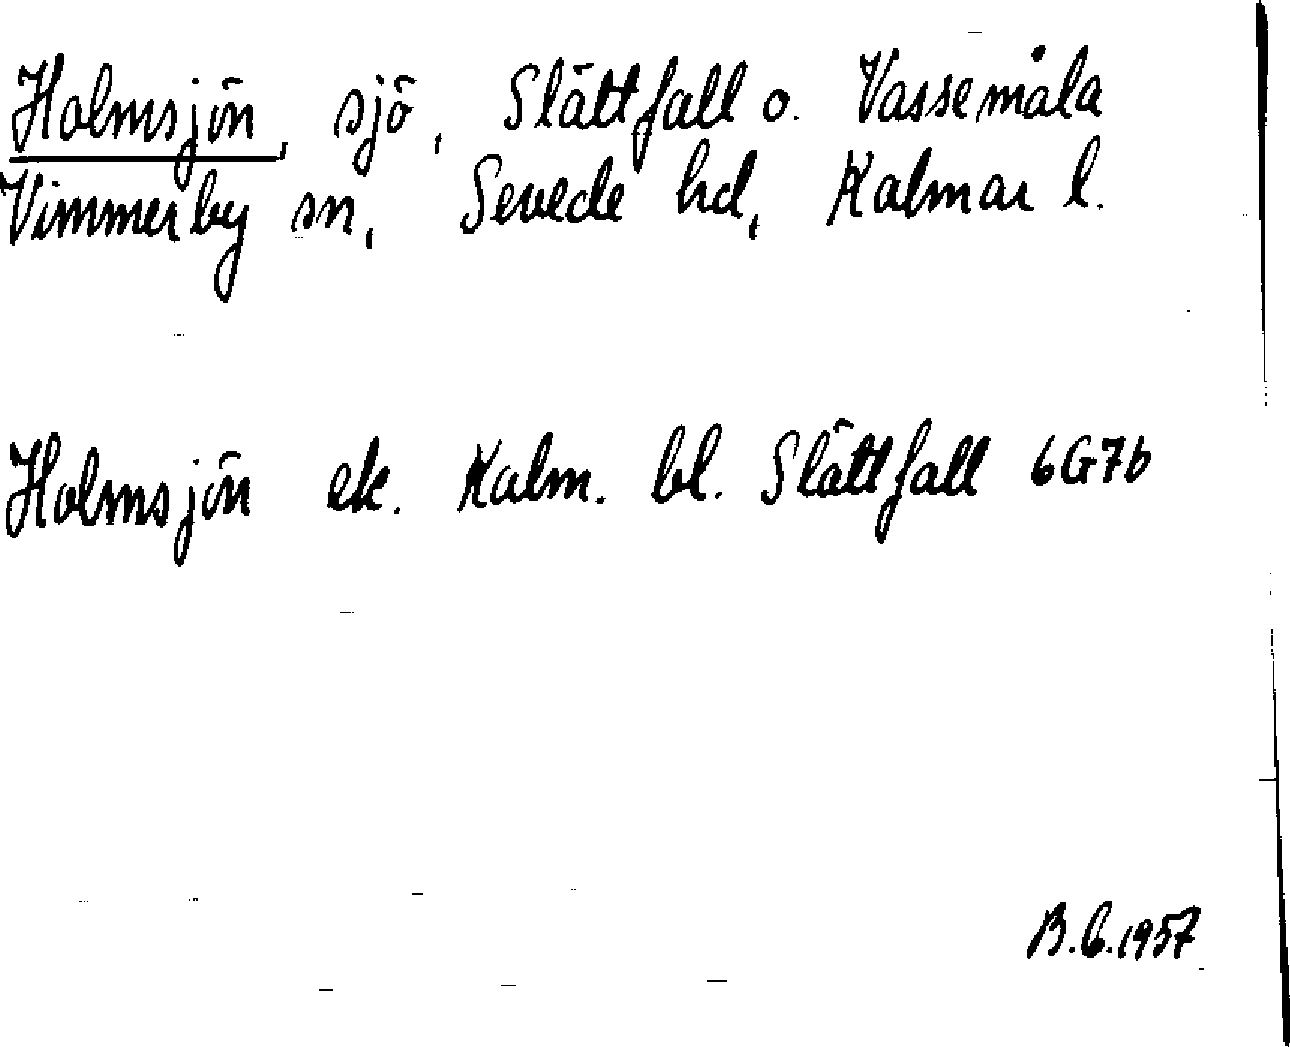 Holmsjön, sjö, Slättfall o. Vassemåla
Vimmerby sn, Sevede hd, Kalmar l.
Holmsjön ek. Kalm. bl. Slättfall 6G7b
B.G.1957